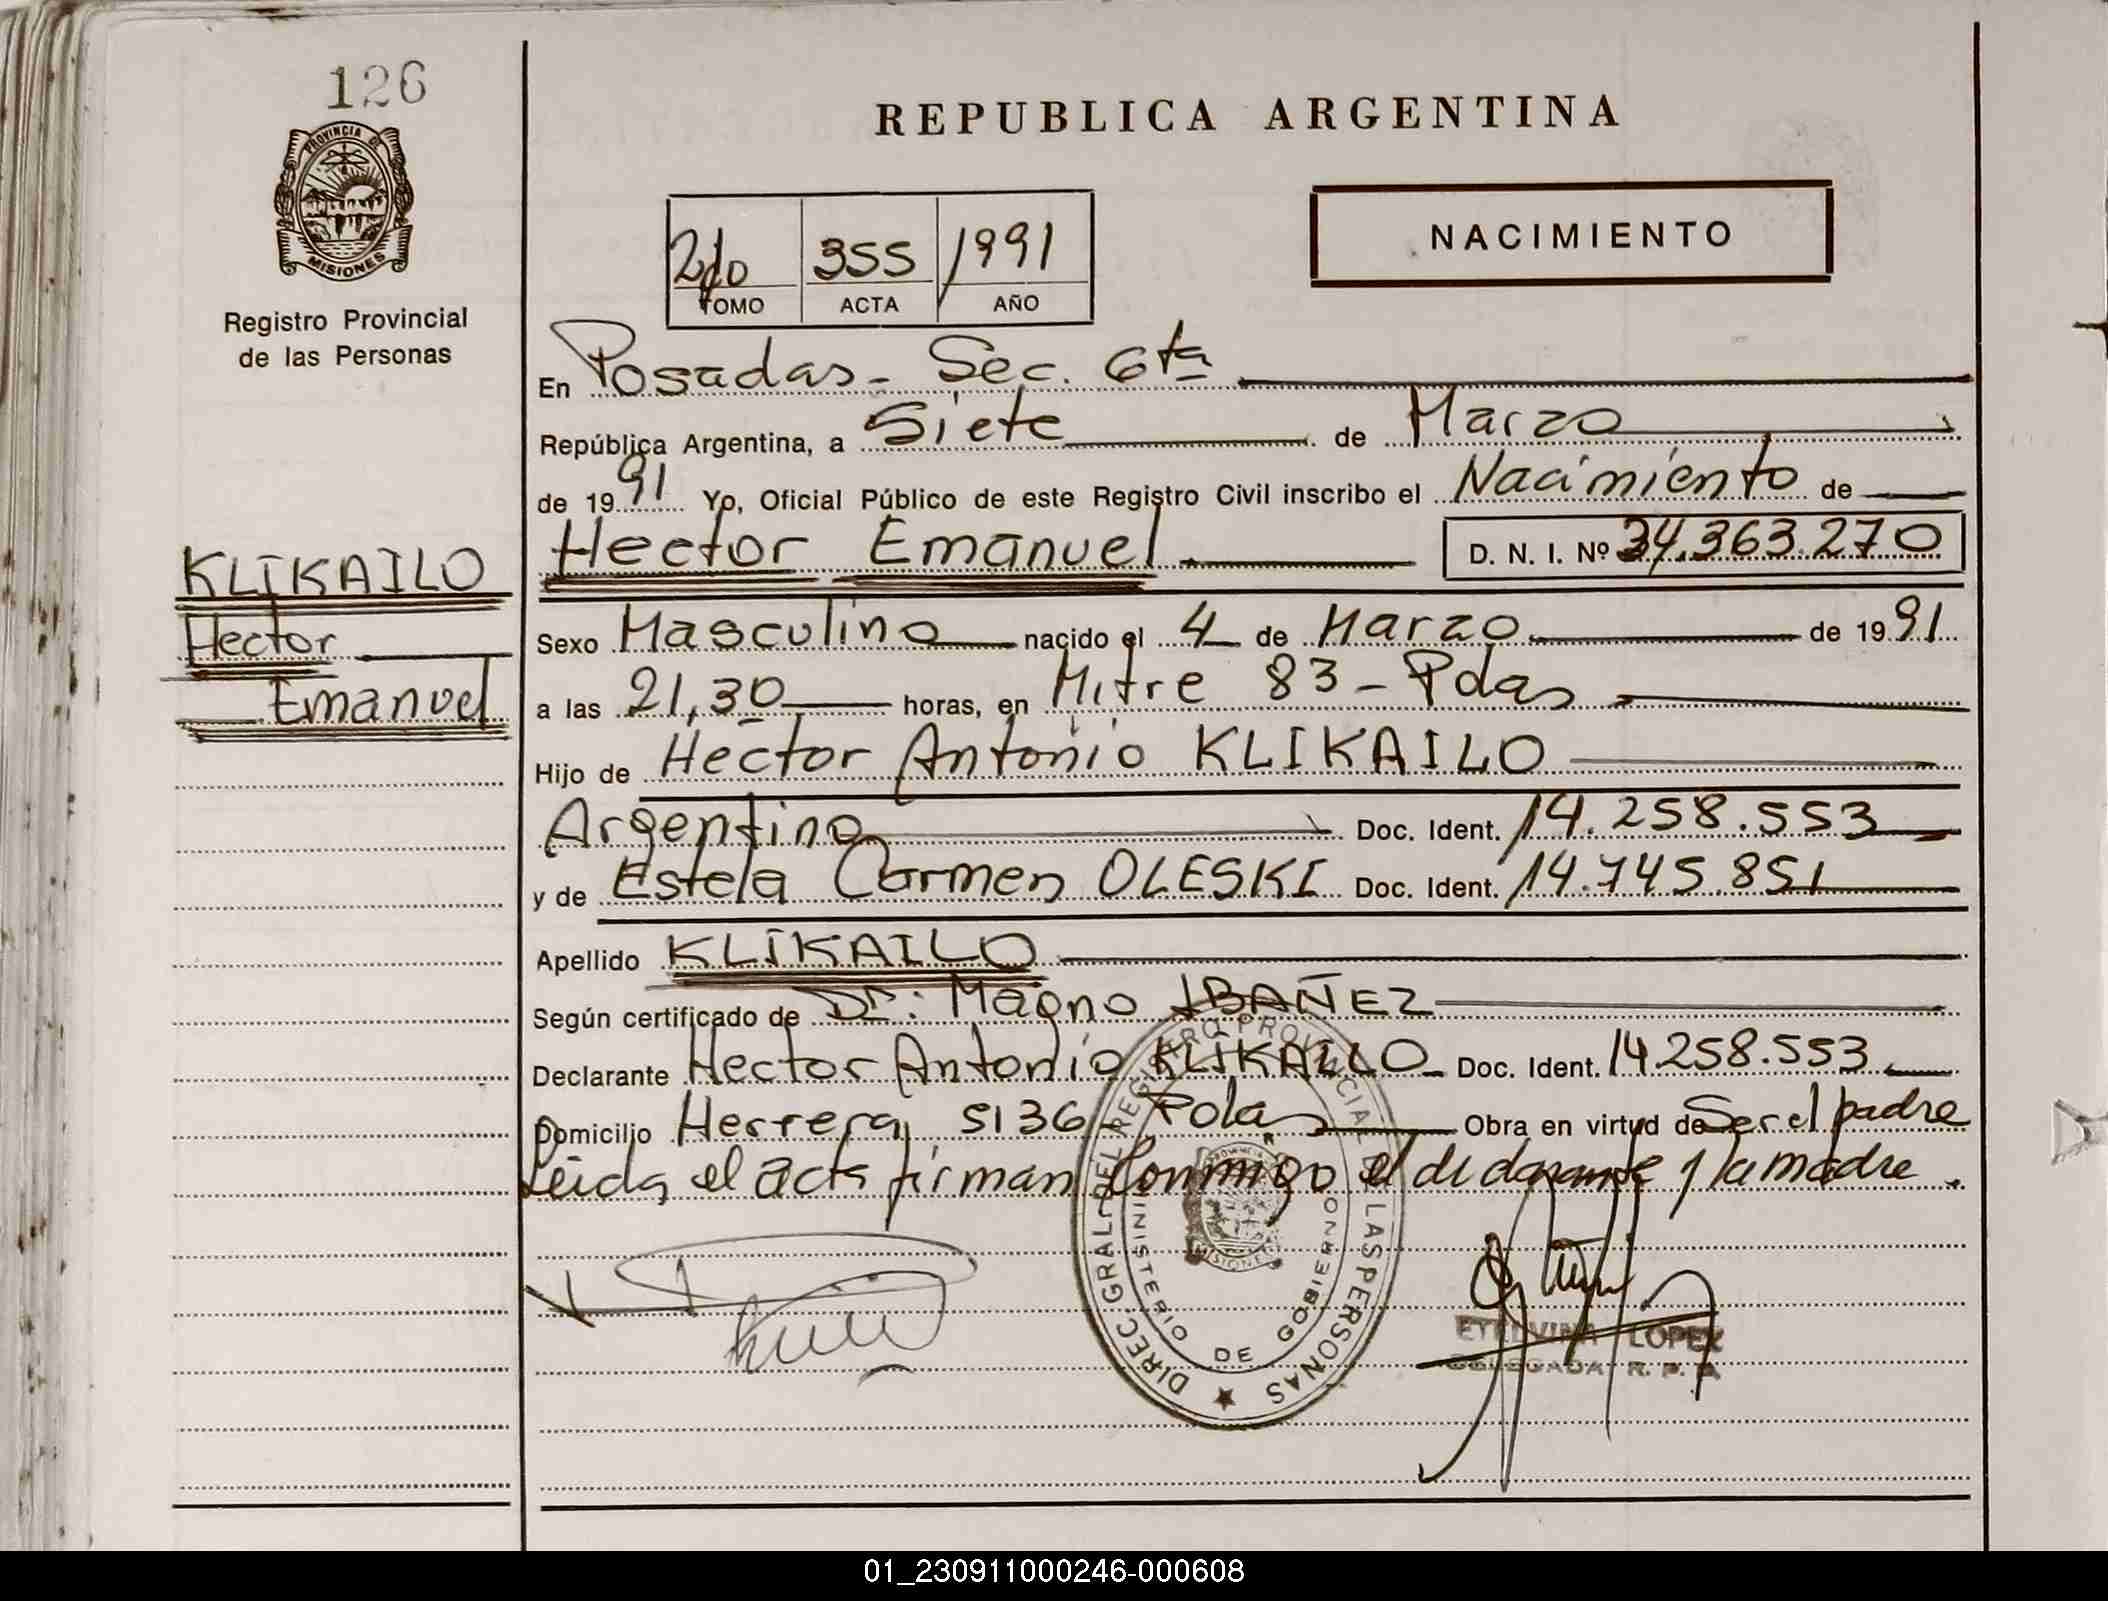 126
PROVINCIA DE
MISIONES
Registro Provincial
de las Personas
REPUBLICA ARGENTINA
NACIMIENTO
2do 355 1991
TOMO ACTA AÑO
En Posadas - Sec. 6ta
República Argentina, a Siete de Marzo
de 1991 Yo, Oficial Público de este Registro Civil inscribo el Nacimiento de
Hector Emanuel D. N. I. Nº 34.363.270
KLIKAILO
Hector
Emanuel
Sexo Masculino nacido el 4 de Marzo de 1991
a las 21,30 horas, en Mitre 83 - Pdas
Hijo de Hector Antonio KLIKAILO
Argentino Doc. Ident. 14.258.553
y de Estela Carmen OLESKI Doc. Ident. 14.745.851
Apellido KLIKAILO
Según certificado de Dr: Magno IBAÑEZ
Declarante Hector Antonio KLIKAILO Doc. Ident. 14.258.553
Domicilio Herrera 5136 - Pdas Obra en virtud de Ser el padre
Leida el acta firman conmigo el declarante y la madre.
DIREC. GRAL. DEL REGISTRO PROVINCIAL DE LAS PERSONAS
MINISTERIO DE GOBIERNO
PROVINCIA
MISIONES
ETELVINA LOPEZ
DELEGADA R. P. P.
01_230911000246-000608